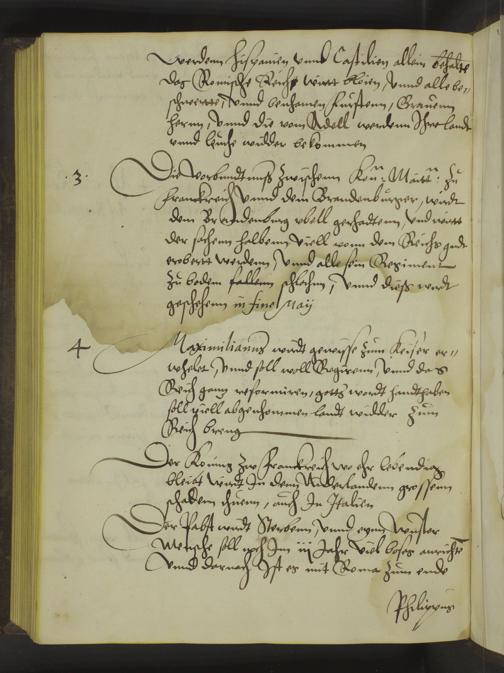 werdenn hispanien vnnd Castilien allein behalte
das Romische Reich wirtt bloien, vnnd alle be-
schwertte, vnnd benhomen fursten, Grauenn
hernn, vnnd die vom Adell werdenn Ihre landt
vnnd leuthe widder bekommen
.3. Die verbundtnuß zwischenn Kon: Maitt: zu
franckreich vnnd dem Brandenburger, wirdt
dem Brandenburg vbell gerhadtenn, vnd wirtt
der sachenn halbenn viell vonn dem Reichs gudt
erobert werdenn, vnnd alle sein Regiment
zu bodem fallenn, vnnd dieß wirdt
geschehenn in fine Maij
4 Maximilianus wirdt gewisse zum Keiser er-
whelet, vnnd soll woll Regirenn, vnnd das
Reich gantz reformiren, gotts wordt handthaben
soll viell abgenhommen landt widder zum
Reich breng
Der Koning zw franckreich wo ehr lebendig
bleibt wirdt In dem Niderlandenn grossenn
schadenn thuenn, auch In Italien
Der Pabst wirdt Sterbenn, vnnd eynn
Mensche soll noch Im iij Jahr viel boses anrichte
vnnd darnach Ist es mit Roma zum ende
Philippus